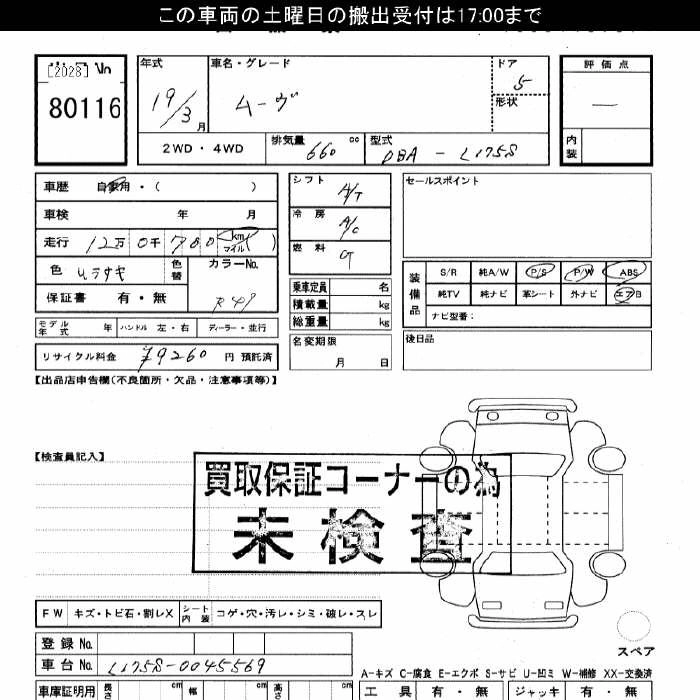 この車両の土曜日の搬出受付は17:00まで
[2028] No
80116
年式 19/3 月
車名・グレード ムーヴ
ドア 5
形状
評価点 —
内装
2WD・4WD
排気量 660 cc
型式 DBA-L175S
車歴 自家用・( )
車検 年 月
走行 12万0千780 km マイル ( )
色 ムラサキ 色替
カラーNo.
保証書 有・無
モデル年式 年 ハンドル 左・右 ディーラー・並行
リサイクル料金 ¥9260 円 預託済
シフト A/T
冷房 A/C
燃料 G
乗車定員 名
積載量 kg
総重量 kg
名変期限 月 日
セールスポイント
装備品
S/R 純A/W P/S P/W ABS
純TV 純ナビ 革シート 外ナビ エアB
ナビ型番:
後日品
【出品店申告欄(不良箇所・欠品・注意事項等)】
【検査員記入】
買取保証コーナーの為
未検査
FW キズ・トビ石・割レX シート内装 コゲ・穴・汚レ・シミ・破レ・スレ
登録No.
車台No. L175S-0045569
スペア
A-キズ C-腐食 E-エクボ S-サビ U-凹ミ W-補修 XX-交換済
車庫証明用 長さ cm 幅 cm 高さ cm
工具 有・無 ジャッキ 有・無